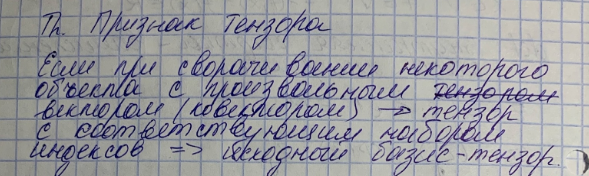 Th. Признак тензора
Если при сворачивании некоторого
объекта с произвольным тензором
вектором (ковектором) → тензор
с соответствующим набором
индексов => исходный базис-тензор.